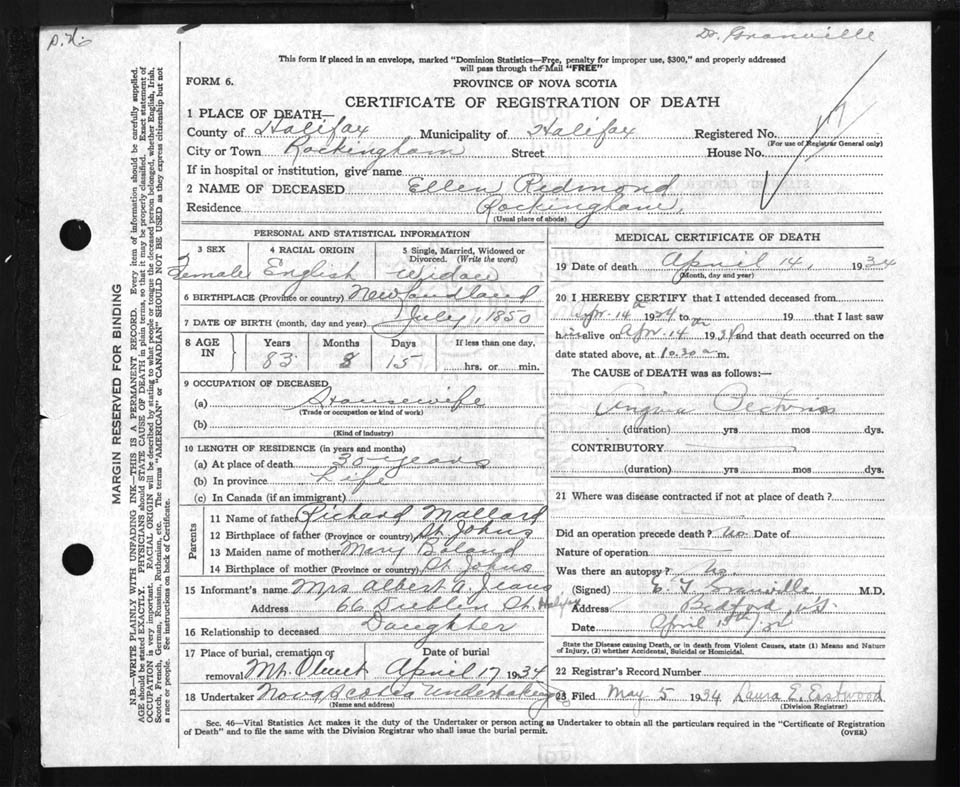 Dr. Granville
This form if placed in an envelope, marked "Dominion Statistics—Free, penalty for improper use, $300," and properly addressed
will pass through the Mail "FREE"
FORM 6.
PROVINCE OF NOVA SCOTIA
CERTIFICATE OF REGISTRATION OF DEATH
MARGIN RESERVED FOR BINDING
N.B.—WRITE PLAINLY WITH UNFADING INK—THIS IS A PERMANENT RECORD. Every item of information should be carefully supplied.
AGE should be stated EXACTLY. PHYSICIANS should STATE CAUSE OF DEATH in plain terms, so that it may be properly classified. Exact statement of
OCCUPATION is very important. RACIAL ORIGIN will be described by stating to what people or tongue the deceased person belonged, whether English, Irish,
Scotch, French, German, Russian, Ruthenian, etc. The terms "AMERICAN" or "CANADIAN" SHOULD NOT BE USED as they express citizenship but not
a race or people. See instructions on back of Certificate.
1 PLACE OF DEATH—
County of Halifax Municipality of Halifax Registered No.
(For use of Registrar General only)
City or Town Rockingham Street House No.
If in hospital or institution, give name
2 NAME OF DECEASED Ellen Redmond
Residence Rockingham
(Usual place of abode)
PERSONAL AND STATISTICAL INFORMATION
3 SEX 4 RACIAL ORIGIN 5 Single, Married, Widowed or
Divorced. (Write the word)
Female English Widow
6 BIRTHPLACE (Province or country) Newfoundland
7 DATE OF BIRTH (month, day and year) July 1, 1850
8 AGE IN Years Months Days If less than one day,
83 8 15 hrs. or min.
9 OCCUPATION OF DECEASED
(a) Housewife
(Trade or occupation or kind of work)
(b)
(Kind of industry)
10 LENGTH OF RESIDENCE (in years and months)
(a) At place of death 30 years
(b) In province Life
(c) In Canada (if an immigrant)
Parents
11 Name of father Richard Mallard
12 Birthplace of father (Province or country) St. Johns
13 Maiden name of mother Mary Boland
14 Birthplace of mother (Province or country) St. Johns
15 Informant's name Mrs Albert A. Jeans
Address 66 Dublin St. Halifax
16 Relationship to deceased Daughter
17 Place of burial, cremation or Date of burial
removal Mt. Olivet April 17 1934
18 Undertaker Nova Scotia Undertaking
(Name and address)
MEDICAL CERTIFICATE OF DEATH
19 Date of death April 14, 1934
(Month, day and year)
20 I HEREBY CERTIFY that I attended deceased from
Apr. 14 1934 to 19 that I last saw
h alive on Apr. 14th 193 and that death occurred on the
date stated above, at 10.30 a m.
The CAUSE of DEATH was as follows:—
Angina Pectoris
(duration) yrs mos dys.
CONTRIBUTORY
(duration) yrs mos dys.
21 Where was disease contracted if not at place of death?
Did an operation precede death? no. Date of
Nature of operation
Was there an autopsy? no.
(Signed) E. T. Granville M.D.
Address Bedford, N.S.
Date April
State the Disease causing Death, or in death from Violent Causes, state (1) Means and Nature
of Injury, (2) whether Accidental, Suicidal or Homicidal.
22 Registrar's Record Number
23 Filed May 5 1934 Laura E. Eastwood
(Division Registrar)
Sec. 46—Vital Statistics Act makes it the duty of the Undertaker or person acting as Undertaker to obtain all the particulars required in the "Certificate of Registration
of Death" and to file the same with the Division Registrar who shall issue the burial permit.
(OVER)